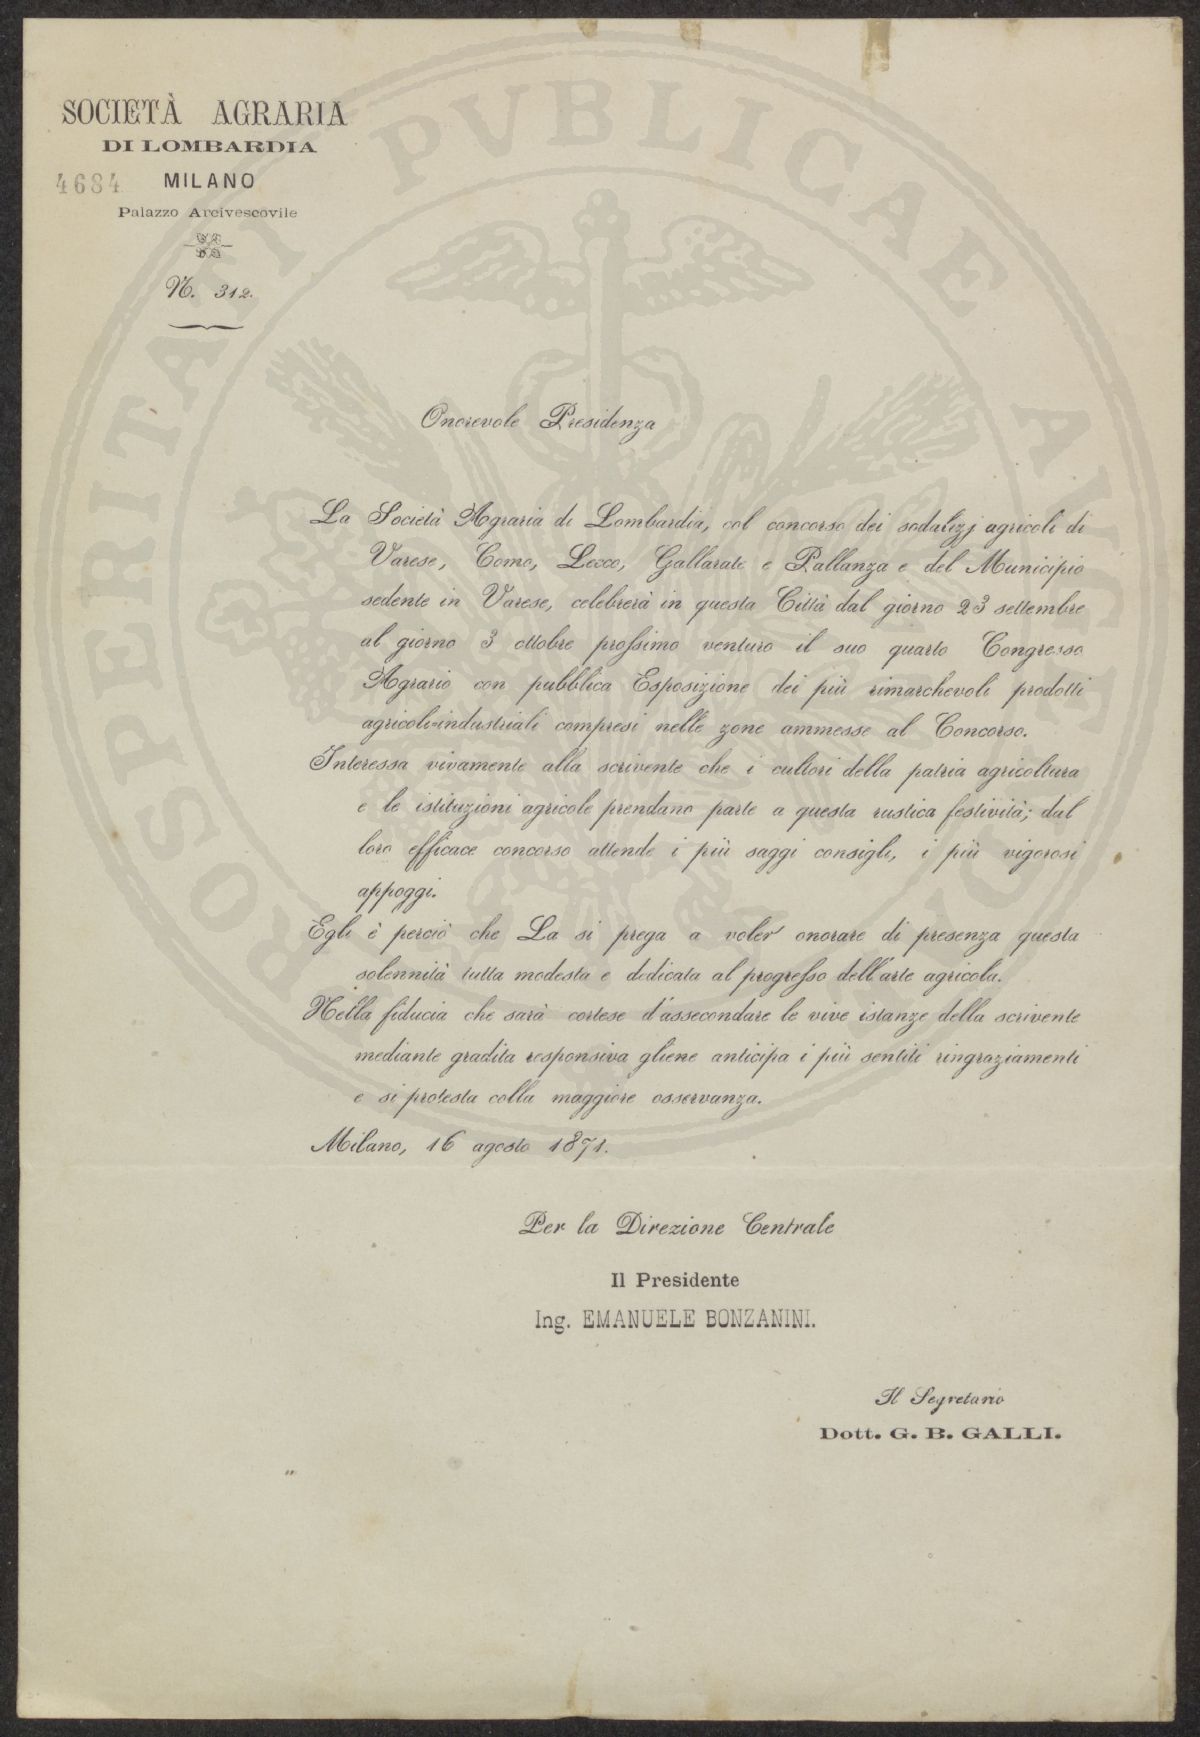 SOCIETÀ AGRARIA
DI LOMBARDIA
4684 MILANO
Palazzo Arcivescovile
N. 312.
Onorevole Presidenza
La Società Agraria di Lombardia, col concorso dei sodalizj agricoli di
Varese, Como, Lecco, Gallarate e Pallanza e del Municipio
sedente in Varese, celebrerà in questa Città dal giorno 23 settembre
al giorno 3 ottobre prossimo venturo il suo quarto Congresso
Agrario con pubblica Esposizione dei più rimarchevoli prodotti
agricoli-industriali compresi nelle zone ammesse al Concorso.
Interessa vivamente alla scrivente che i cultori della patria agricoltura
e le istituzioni agricole prendano parte a questa rustica festività; dal
loro efficace concorso attende i più saggi consigli, i più vigorosi
appoggi.
Egli è perciò che La si prega a voler onorare di presenza questa
solennità tutta modesta e dedicata al progresso dell'arte agricola.
Nella fiducia che sarà cortese d'assecondare le vive istanze della scrivente
mediante gradita responsiva gliene anticipa i più sentiti ringraziamenti
e si protesta colla maggiore osservanza.
Milano, 16 agosto 1871.
Per la Direzione Centrale
Il Presidente
Ing. EMANUELE BONZANINI.
Il Segretario
Dott. G. B. GALLI.
PROSPERITATI PVBLICAE AVGENDAE